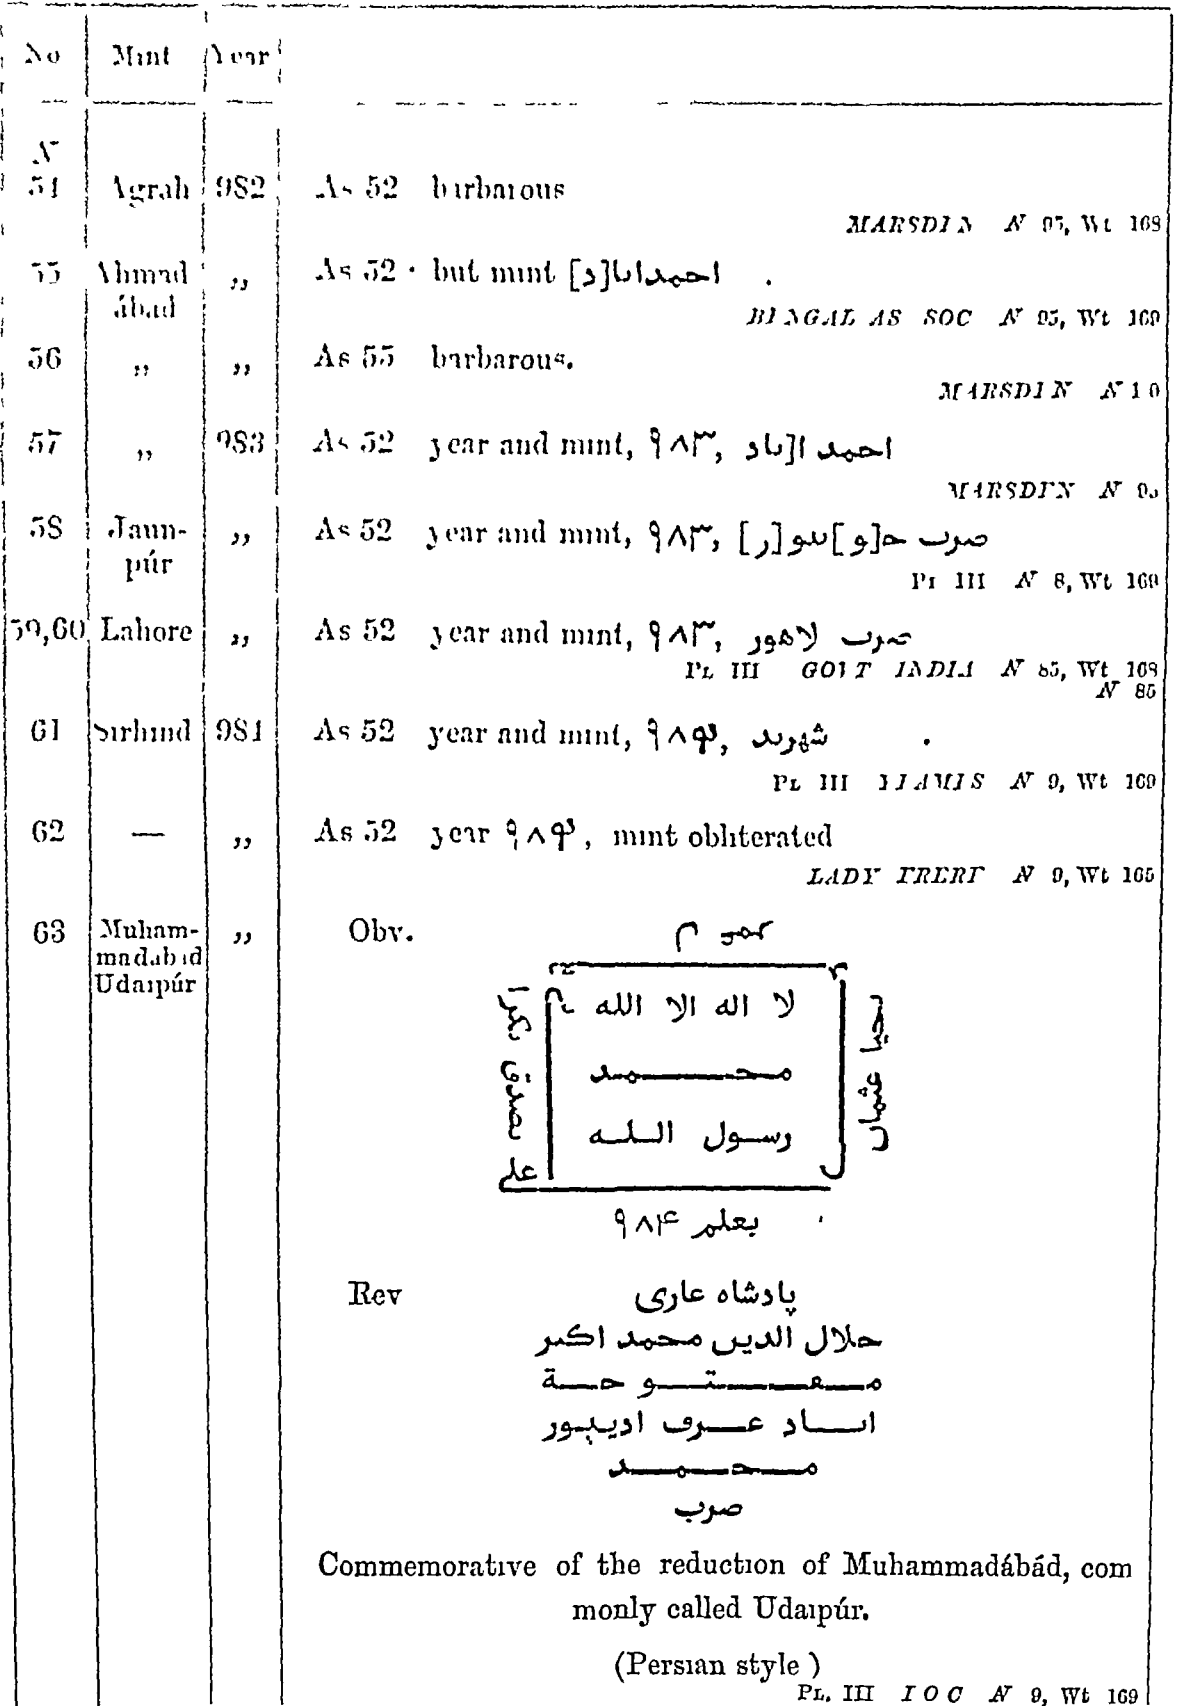 No Mint Year
N
54 Agrah 982 As 52 barbarous
MARSDEN N 95, Wt 168
55 Ahmad ,, As 52 · but mint احمداىا[د] .
ábad
BENGAL AS SOC N 95, Wt 169
56 ,, ,, As 55 barbarous.
MARSDEN N 1 0
57 ,, 983 As 52 year and mint, ۹۸۳, احمد ا[ىاد
MARSDEN N
58 Jaun- ,, As 52 year and mint, ۹۸۳, صرب حـ[و]ںىو[ر]
púr
Pl III N 8, Wt 169
59,60 Lahore ,, As 52 year and mint, ۹۸۳, صرب لاهور
PL III GOVT INDIA N 85, Wt 168
N 85
61 Sirhind 984 As 52 year and mint, ۹۸۴, شهرىد .
PL III N 9, Wt 169
62 — ,, As 52 year ۹۸۴, mint obliterated
LADY FRERE N 9, Wt 165
63 Muham- ,, Obv.
madabad
Udaipúr
لا اله الا الله
محمد
رسول الله
ىصدق
على
ىحيا عثماں
بعلم ۹۸۴
Rev پادشاه عارى
حلال الديں محمد اكىر
مفتوحة
اىاد عرف اديپور
محمد
صرب
Commemorative of the reduction of Muhammadábád, com
monly called Udaipúr.
(Persian style )
PL. III I O C N 9, Wt 169